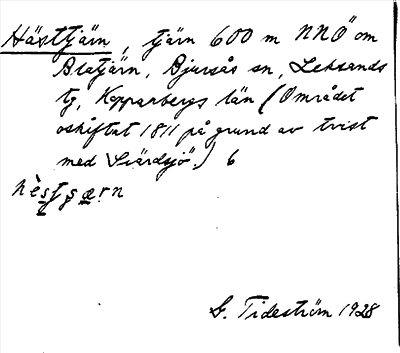 Hästtjärn, tjärn 600 m NNÖ om
Blatjärn, Bjursås sn, Leksands
tg, Kopparbergs län (Området
oskiftat 1811 på grund av tvist
med Svärdsjö.) 6
G. Tideström 1928